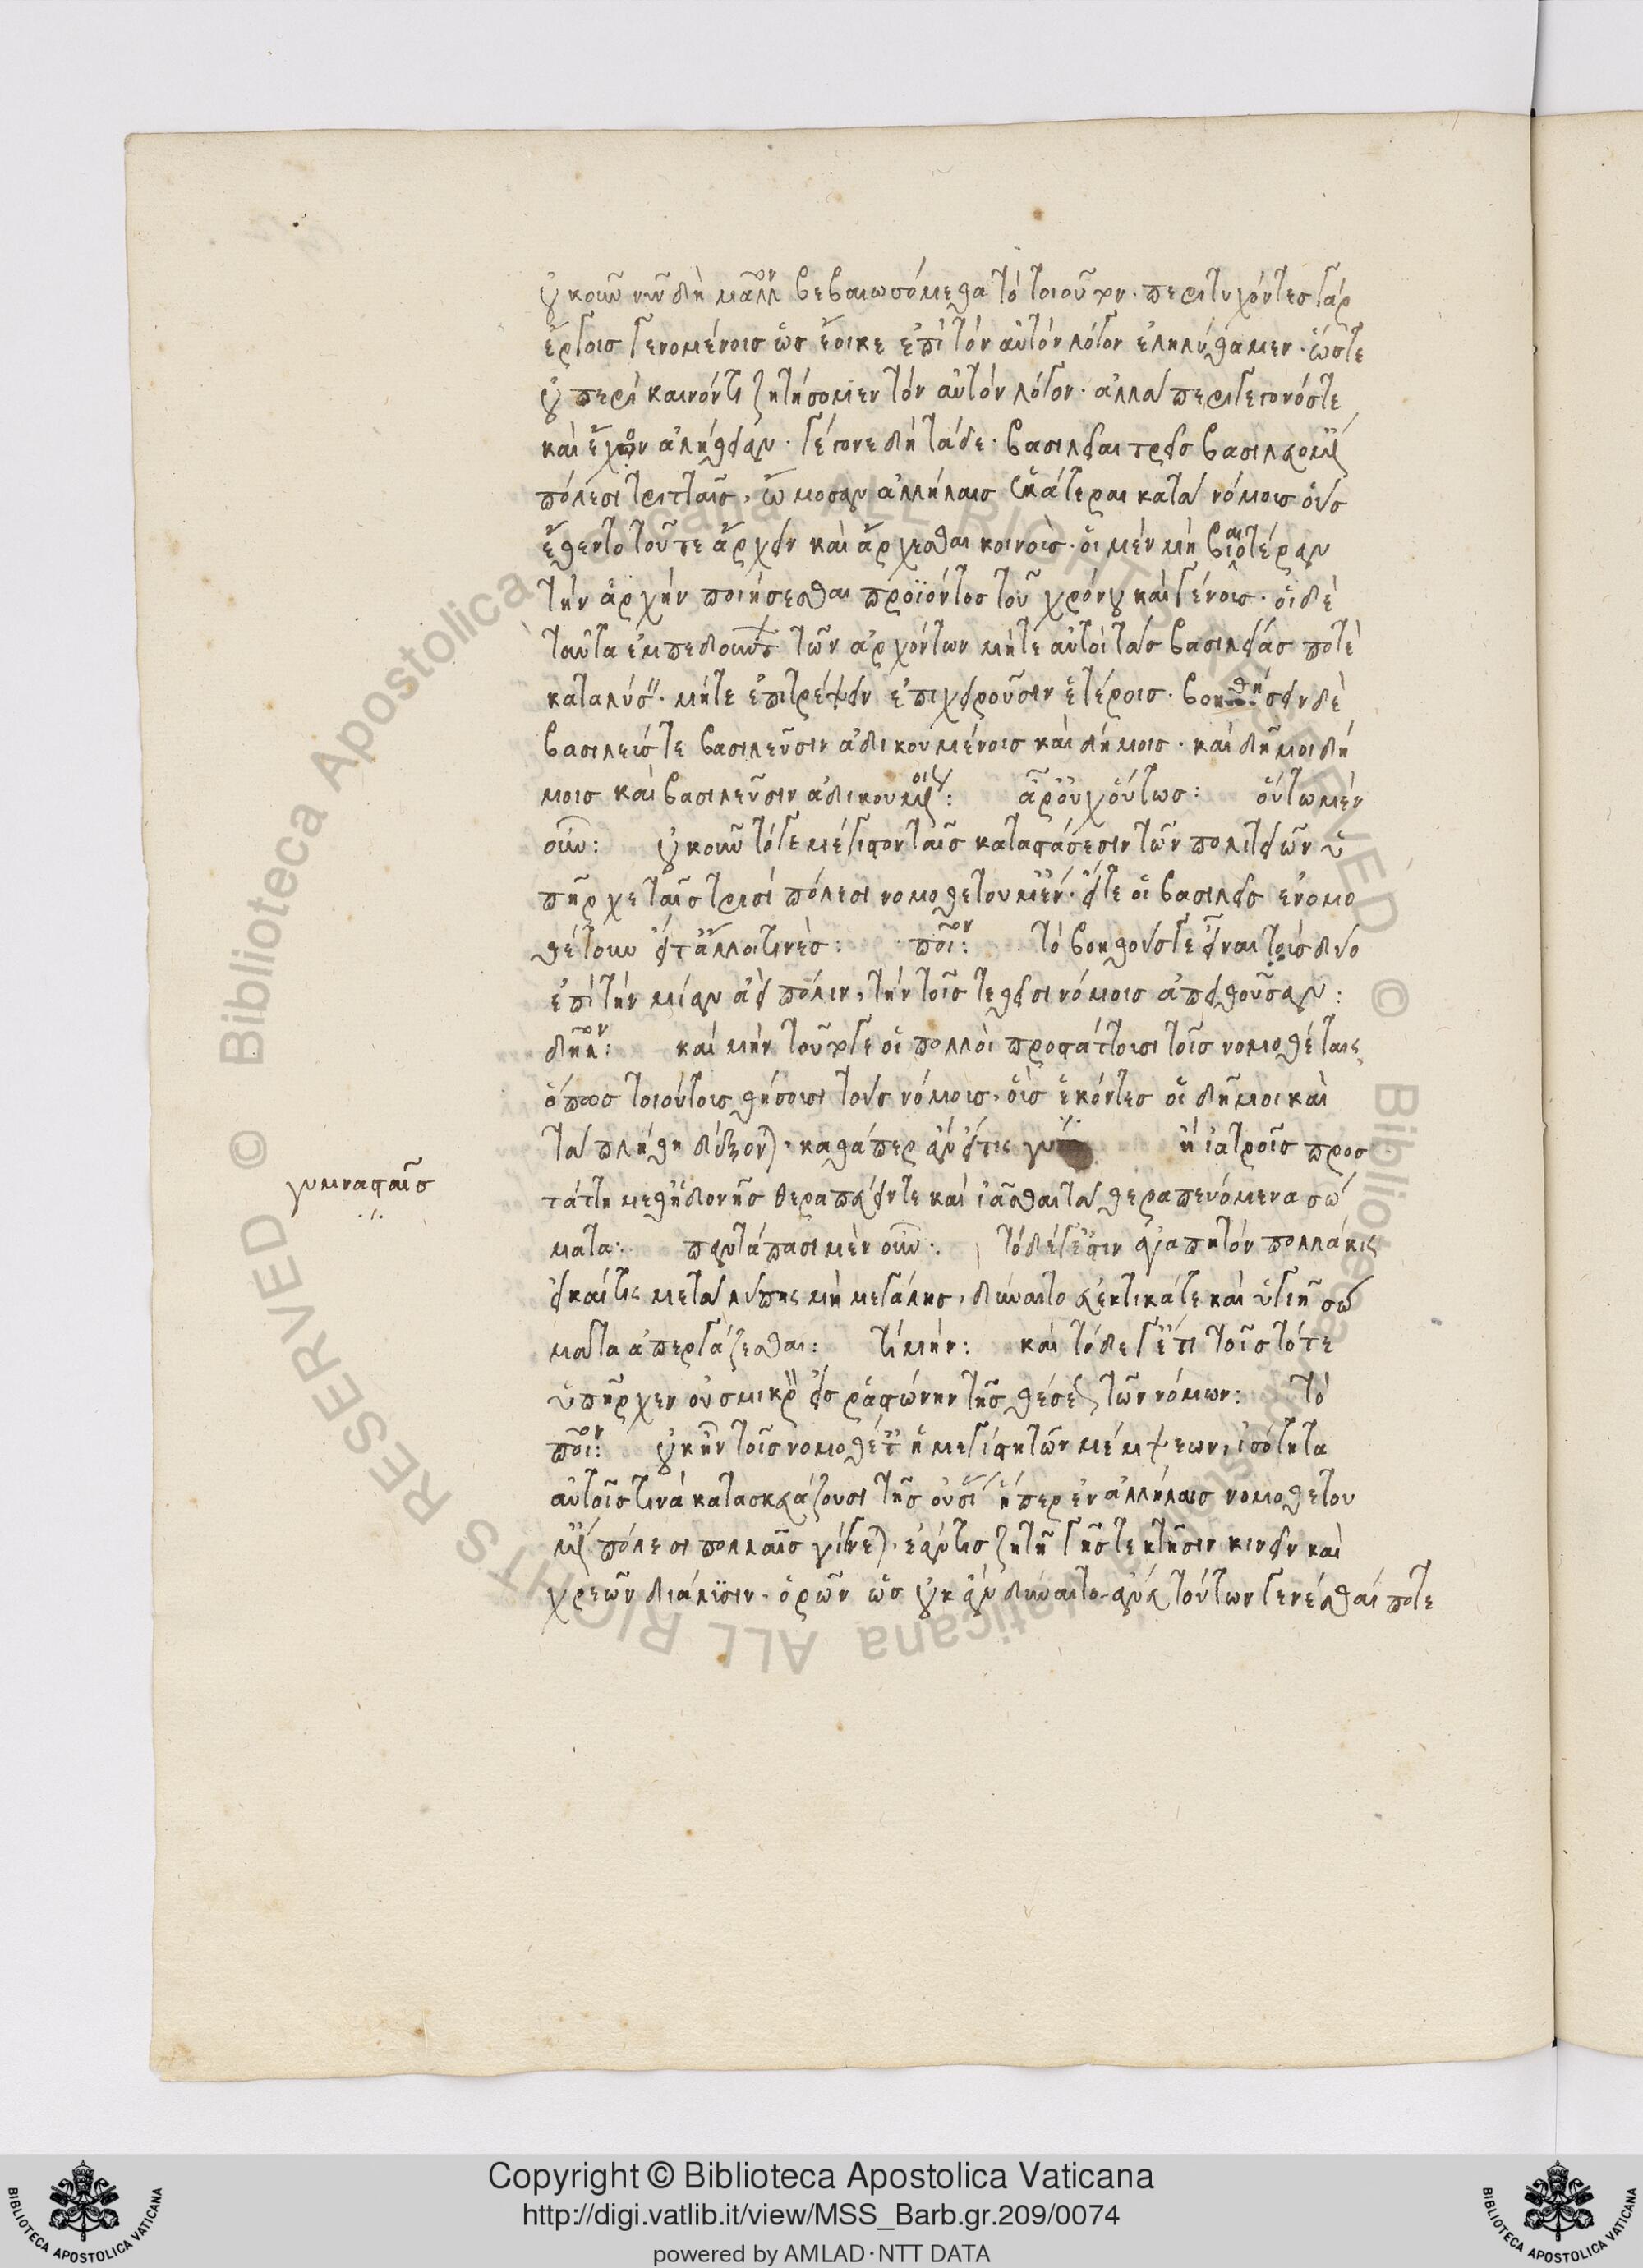 οὐκοῦν νῦν δὴ μᾶλλον βεβαιωσόμεθα τὸ τοιοῦτον· περιτυχόντες γὰρ
ἔργοις γενομένοις ὡς ἔοικε ἐπὶ τὸν αὐτὸν λόγον ἐληλύθαμεν· ὥστε
οὐ περὶ κενόν τι ζητήσομεν τὸν αὐτὸν λόγον· ἀλλὰ περὶ γεγονός τε
καὶ ἔχον ἀλήθειαν· γέγονε δὴ τάδε· βασιλεῖαι τρεῖς βασιλευομέναις
πόλεσι τριτταῖς, ὤμοσαν ἀλλήλαις ἑκάτεραι κατὰ νόμους οὓς
ἔθεντο τοῦ τε ἄρχειν καὶ ἄρχεσθαι κοινούς· οἱ μὲν μὴ βιαιοτέραν
τὴν ἀρχὴν ποιήσεσθαι προϊόντος τοῦ χρόνου καὶ γένους· οἱ δὲ
ταῦτα ἐμπεδούντων τῶν ἀρχόντων μήτε αὐτοὶ τὰς βασιλείας ποτὲ
καταλύσειν· μήτε ἐπιτρέψειν ἐπιχειροῦσιν ἑτέροις· βοηθήσειν δὲ
βασιλεῖς τε βασιλεῦσιν ἀδικουμένοις καὶ δήμοις· καὶ δῆμοι δή
μοις καὶ βασιλεῦσιν ἀδικουμένοις: ἆρ' οὐχ οὕτως: οὕτω μὲν
οὖν: οὐκοῦν τό γε μέγιστον ταῖς καταστάσεσιν τῶν πολιτειῶν ὑ
πῆρχε ταῖς τρισὶ πόλεσι νομοθετουμέναις· εἴτε οἱ βασιλεῖς ἐνομο
θέτουν εἴτ' ἄλλοι τινές: ποῖον: τὸ βοηθούς τε εἶναι τοὺς δύο
ἐπὶ τὴν μίαν ἀεὶ πόλιν, τὴν τοῖς τεθεῖσι νόμοις ἀπειθοῦσαν:
δῆλον: καὶ μὴν τοῦτό γε οἱ πολλοὶ προστάττουσι τοῖς νομοθέταις
ὅπως τοιούτους θήσουσι τοὺς νόμους, οὓς ἑκόντες οἱ δῆμοι καὶ
τὰ πλήθη δέξονται, καθάπερ ἂν εἴ τις γυ ἢ ἰατροῖς προσ
γυμνασταῖς
τάττη μεθ' ἡδονῆς θεραπεύειν τε καὶ ἰᾶσθαι τὰ θεραπευόμενα σώ
ματα: παντάπασι μὲν οὖν: τὸ δέ γ' ἐστιν ἀγαπητὸν πολλάκις
εἰ καί τις μετὰ λύπης μὴ μεγάλης, δύναιτο εὐεκτικά τε καὶ ὑγιῆ σώ
ματα ἀπεργάζεσθαι: τί μήν: καὶ τόδε γ' ἔτι τοῖς τότε
ὑπῆρχεν οὐ σμικρὸν εἰς ῥᾳστώνην τῆς θέσεως τῶν νόμων: τὸ
ποῖον: οὐκ ἦν τοῖς νομοθέταις ἡ μεγίστη τῶν μέμψεων, ἰσότητα
αὐτοῖς τινὰ κατασκευάζουσι τῆς οὐσίας ἥπερ ἐν ἀλλήλαις νομοθετου
μέναις πόλεσι πολλαῖς γίγνεται, ἐάν τις ζητῆ γῆς τε κτῆσιν κινεῖν καὶ
χρεῶν διάλυσιν· ὁρῶν ὡς οὐκ ἂν δύναιτο ἄνευ τούτων γενέσθαι ποτε
Copyright © Biblioteca Apostolica Vaticana
http://digi.vatlib.it/view/MSS_Barb.gr.209/0074
powered by AMLAD·NTT DATA
BIBLIOTECA APOSTOLICA VATICANA
BIBLIOTECA APOSTOLICA VATICANA
© Biblioteca Apostolica Vaticana ALL RIGHTS RESERVED © Biblioteca Apostolica Vaticana ALL RIGHTS RESERVED